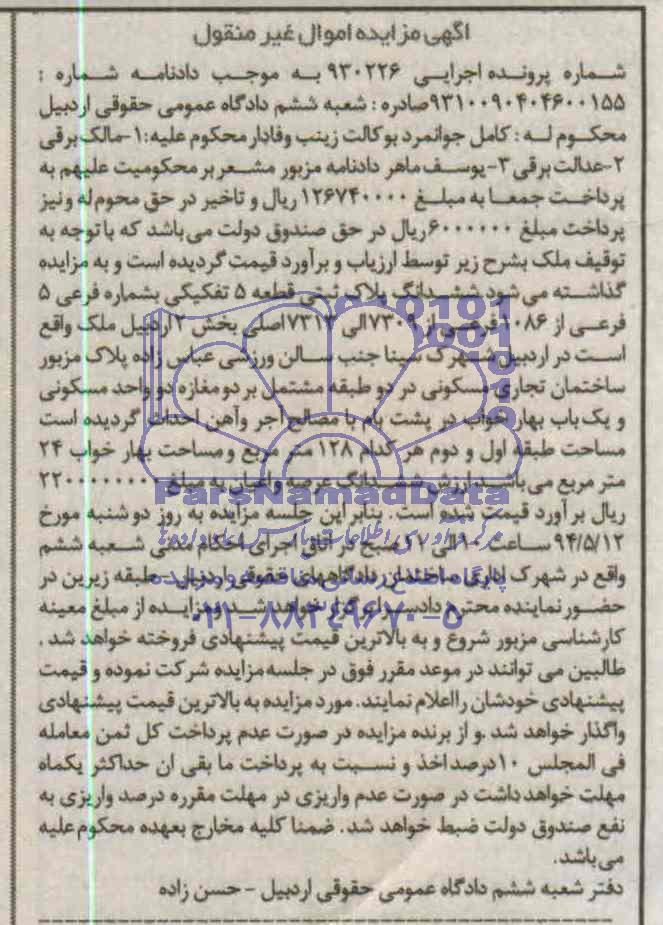 آگهی مزایده اموال غیر منقول
شماره پرونده اجرایی ۹۳۰۲۲۶ به موجب دادنامه شماره :
۹۳۱۰۰۹۰۴۰۴۶۰۰۱۵۵صادره : شعبه ششم دادگاه عمومی حقوقی اردبیل
محکوم له : کامل جوانمرد بوکالت زینب وفادار محکوم علیه:۱-مالک برقی
۲-عدالت برقی ۳-یوسف ماهر دادنامه مزبور مشعر بر محکومیت علیهم به
پرداخت جمعا به مبلغ ۱۲۶۷۴۰۰۰۰ ریال و تاخیر در حق محوم له و نیز
پرداخت مبلغ ۶۰۰۰۰۰۰ریال در حق صندوق دولت می باشد که با توجه به
توقیف ملک بشرح زیر توسط ارزیاب و برآورد قیمت گردیده است و به مزایده
گذاشته می شود ششدانگ پلاک ثبتی قطعه ۵ تفکیکی بشماره فرعی ۵
فرعی از ۱۰۸۶ فرعی از ۷۳۰۹الی ۷۳۱۳اصلی بخش ۳ اردبیل ملک واقع
است در اردبیل شهرک سینا جنب سالن ورزشی عباس زاده پلاک مزبور
ساختمان تجاری مسکونی در دو طبقه مشتمل بر دو مغازه دو واحد مسکونی
و یک باب بهار خواب در پشت بام با مصالح آجر وآهن احداث گردیده است
مساحت طبقه اول و دوم هر کدام ۱۲۸ متر مربع و مساحت بهار خواب ۲۴
متر مربع می باشد ارزش ششدانگ عرصه واعیان به مبلغ ۲۲۰۰۰۰۰۰۰۰
ریال بر آورد قیمت شده است. بنابر این جلسه مزایده به روز دو شنبه مورخ
۹۴/۵/۱۲ ساعت ۱۰ الی ۱۱ صبح در اتاق اجرای احکام مدنی شعبه ششم
واقع در شهرک اداری ساختمان دادگاههای حقوقی اردبیل - طبقه زیرین در
حضور نماینده محترم دادسرا برگزار خواهد شد ومزایده از مبلغ معینه
کارشناسی مزبور شروع و به بالاترین قیمت پیشنهادی فروخته خواهد شد .
طالبین می توانند در موعد مقرر فوق در جلسه مزایده شرکت نموده و قیمت
پیشنهادی خودشان رااعلام نمایند. مورد مزایده به بالاترین قیمت پیشنهادی
واگذار خواهد شد .و از برنده مزایده در صورت عدم پرداخت کل ثمن معامله
فی المجلس ۱۰درصد اخذ و نسبت به پرداخت ما بقی ان حداکثر یکماه
مهلت خواهد داشت در صورت عدم واریزی در مهلت مقرره درصد واریزی به
نفع صندوق دولت ضبط خواهد شد. ضمنا کلیه مخارج بعهده محکوم علیه
می باشد.
دفتر شعبه ششم دادگاه عمومی حقوقی اردبیل - حسن زاده
ParsNamadData
۰۲۱-۸۸۳۴۹۶۷۰-۵